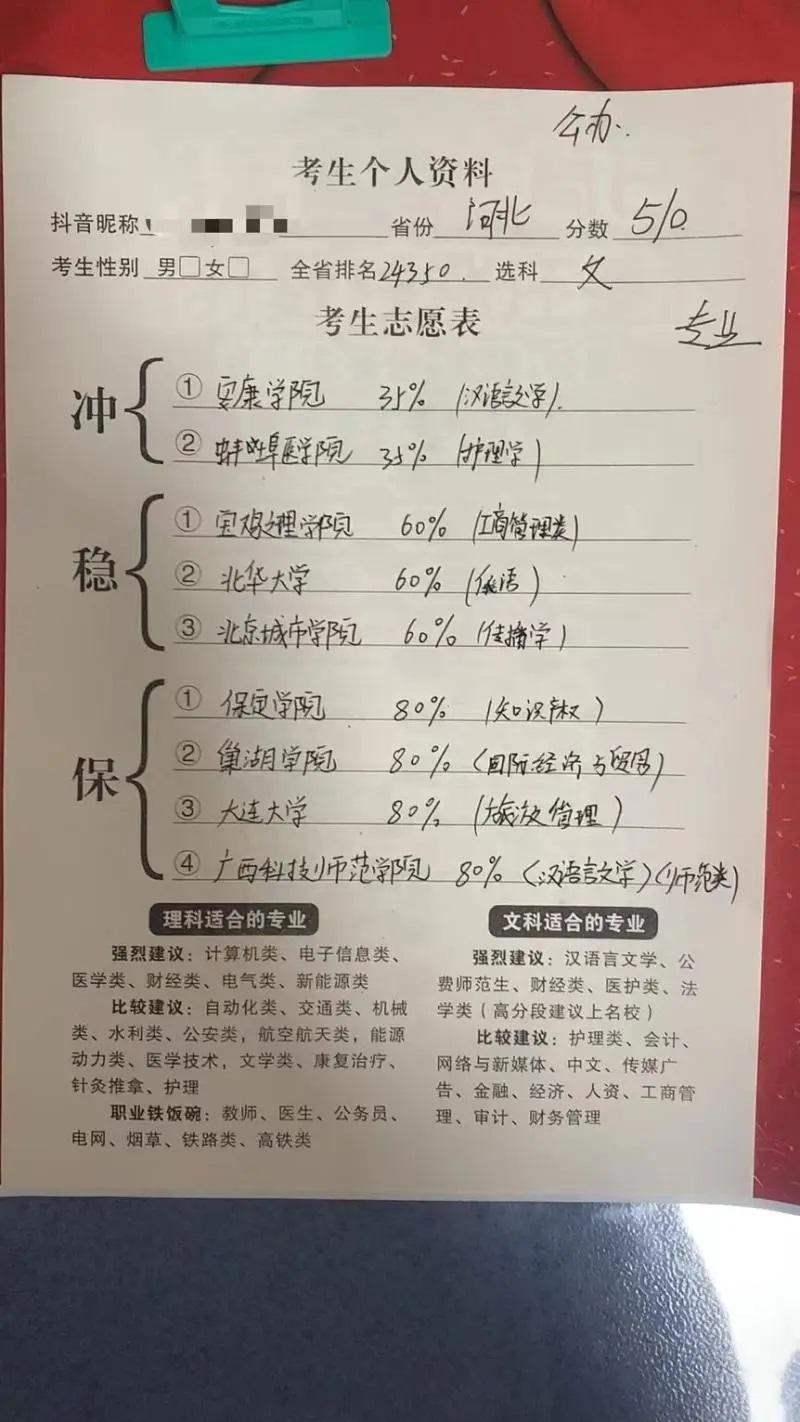 公办.
考生个人资料
抖音昵称 省份 河北 分数 510
考生性别 男□女□ 全省排名 24350. 选科 文
考生志愿表
专业
冲
① 安康学院 35% (汉语言文学).
② 蚌埠医学院 35% (护理学)
稳
① 宝鸡文理学院 60% (工商管理类)
② 北华大学 60% (俄语)
③ 北京城市学院 60% (传播学)
保
① 保定学院 80% (知识产权)
② 巢湖学院 80% (国际经济与贸易)
③ 大连大学 80% (旅游管理)
④ 广西科技师范学院 80% (汉语言文学)(师范类)
理科适合的专业
强烈建议：计算机类、电子信息类、
医学类、财经类、电气类、新能源类
比较建议：自动化类、交通类、机械
类、水利类、公安类，航空航天类，能源
动力类、医学技术，文学类、康复治疗、
针灸推拿、护理
职业铁饭碗：教师、医生、公务员、
电网、烟草、铁路类、高铁类
文科适合的专业
强烈建议：汉语言文学、公
费师范生、财经类、医护类、法
学类（高分段建议上名校）
比较建议：护理类、会计、
网络与新媒体、中文、传媒广
告、金融、经济、人资、工商管
理、审计、财务管理